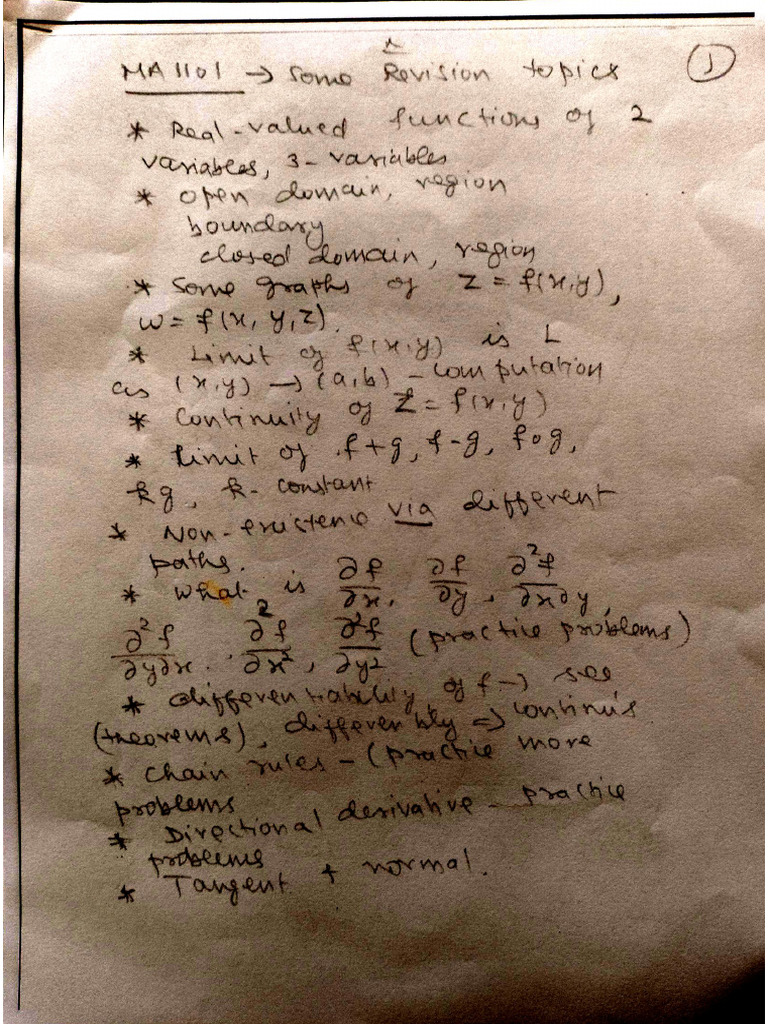 MA1101 → Some Revision topics ①
* Real-valued functions of 2
variables, 3-variables
* open domain, region
boundary
closed domain, region
* Some graphs of z = f(x,y),
w = f(x, y, z).
* Limit of f(x,y) is L
as (x,y) → (a,b) - computation
* Continuity of z = f(x,y)
* Limit of f+g, f-g, fog,
kg, k- constant
* Non-existence via different
paths.
* What is ∂f/∂x, ∂f/∂y, ∂²f/∂x∂y,
∂²f/∂y∂x. ∂²f/∂x², ∂²f/∂y² (practice problems)
* differentiability of f → see
(theorems), differenbly ⇒ continus
* Chain rules - (practice more
problems
* Directional derivative - practice
problems
* Tangent + normal.